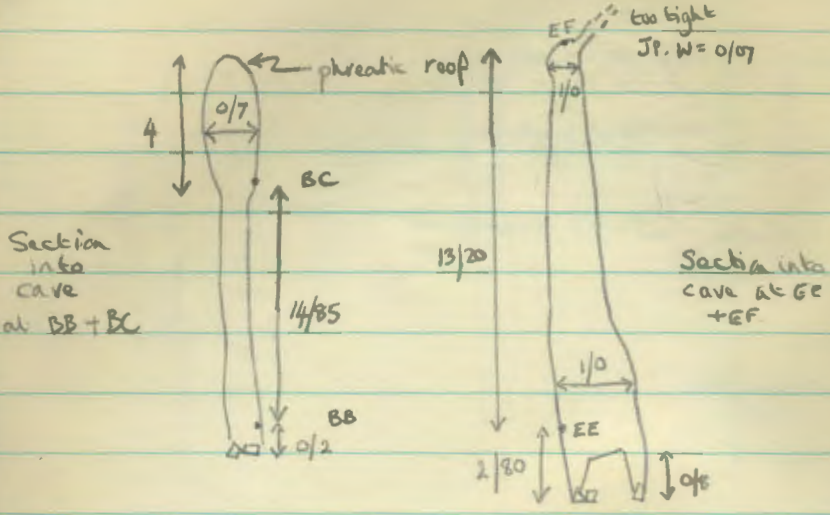 phreatic roof
0/7
4
BC
Section
into
cave
at BB + BC
14/85
BB
0/2
EF
too tight
JP. W = 0/07
1/0
13/20
Section into
cave at EE
+ EF
1/0
EE
2/80
0/8